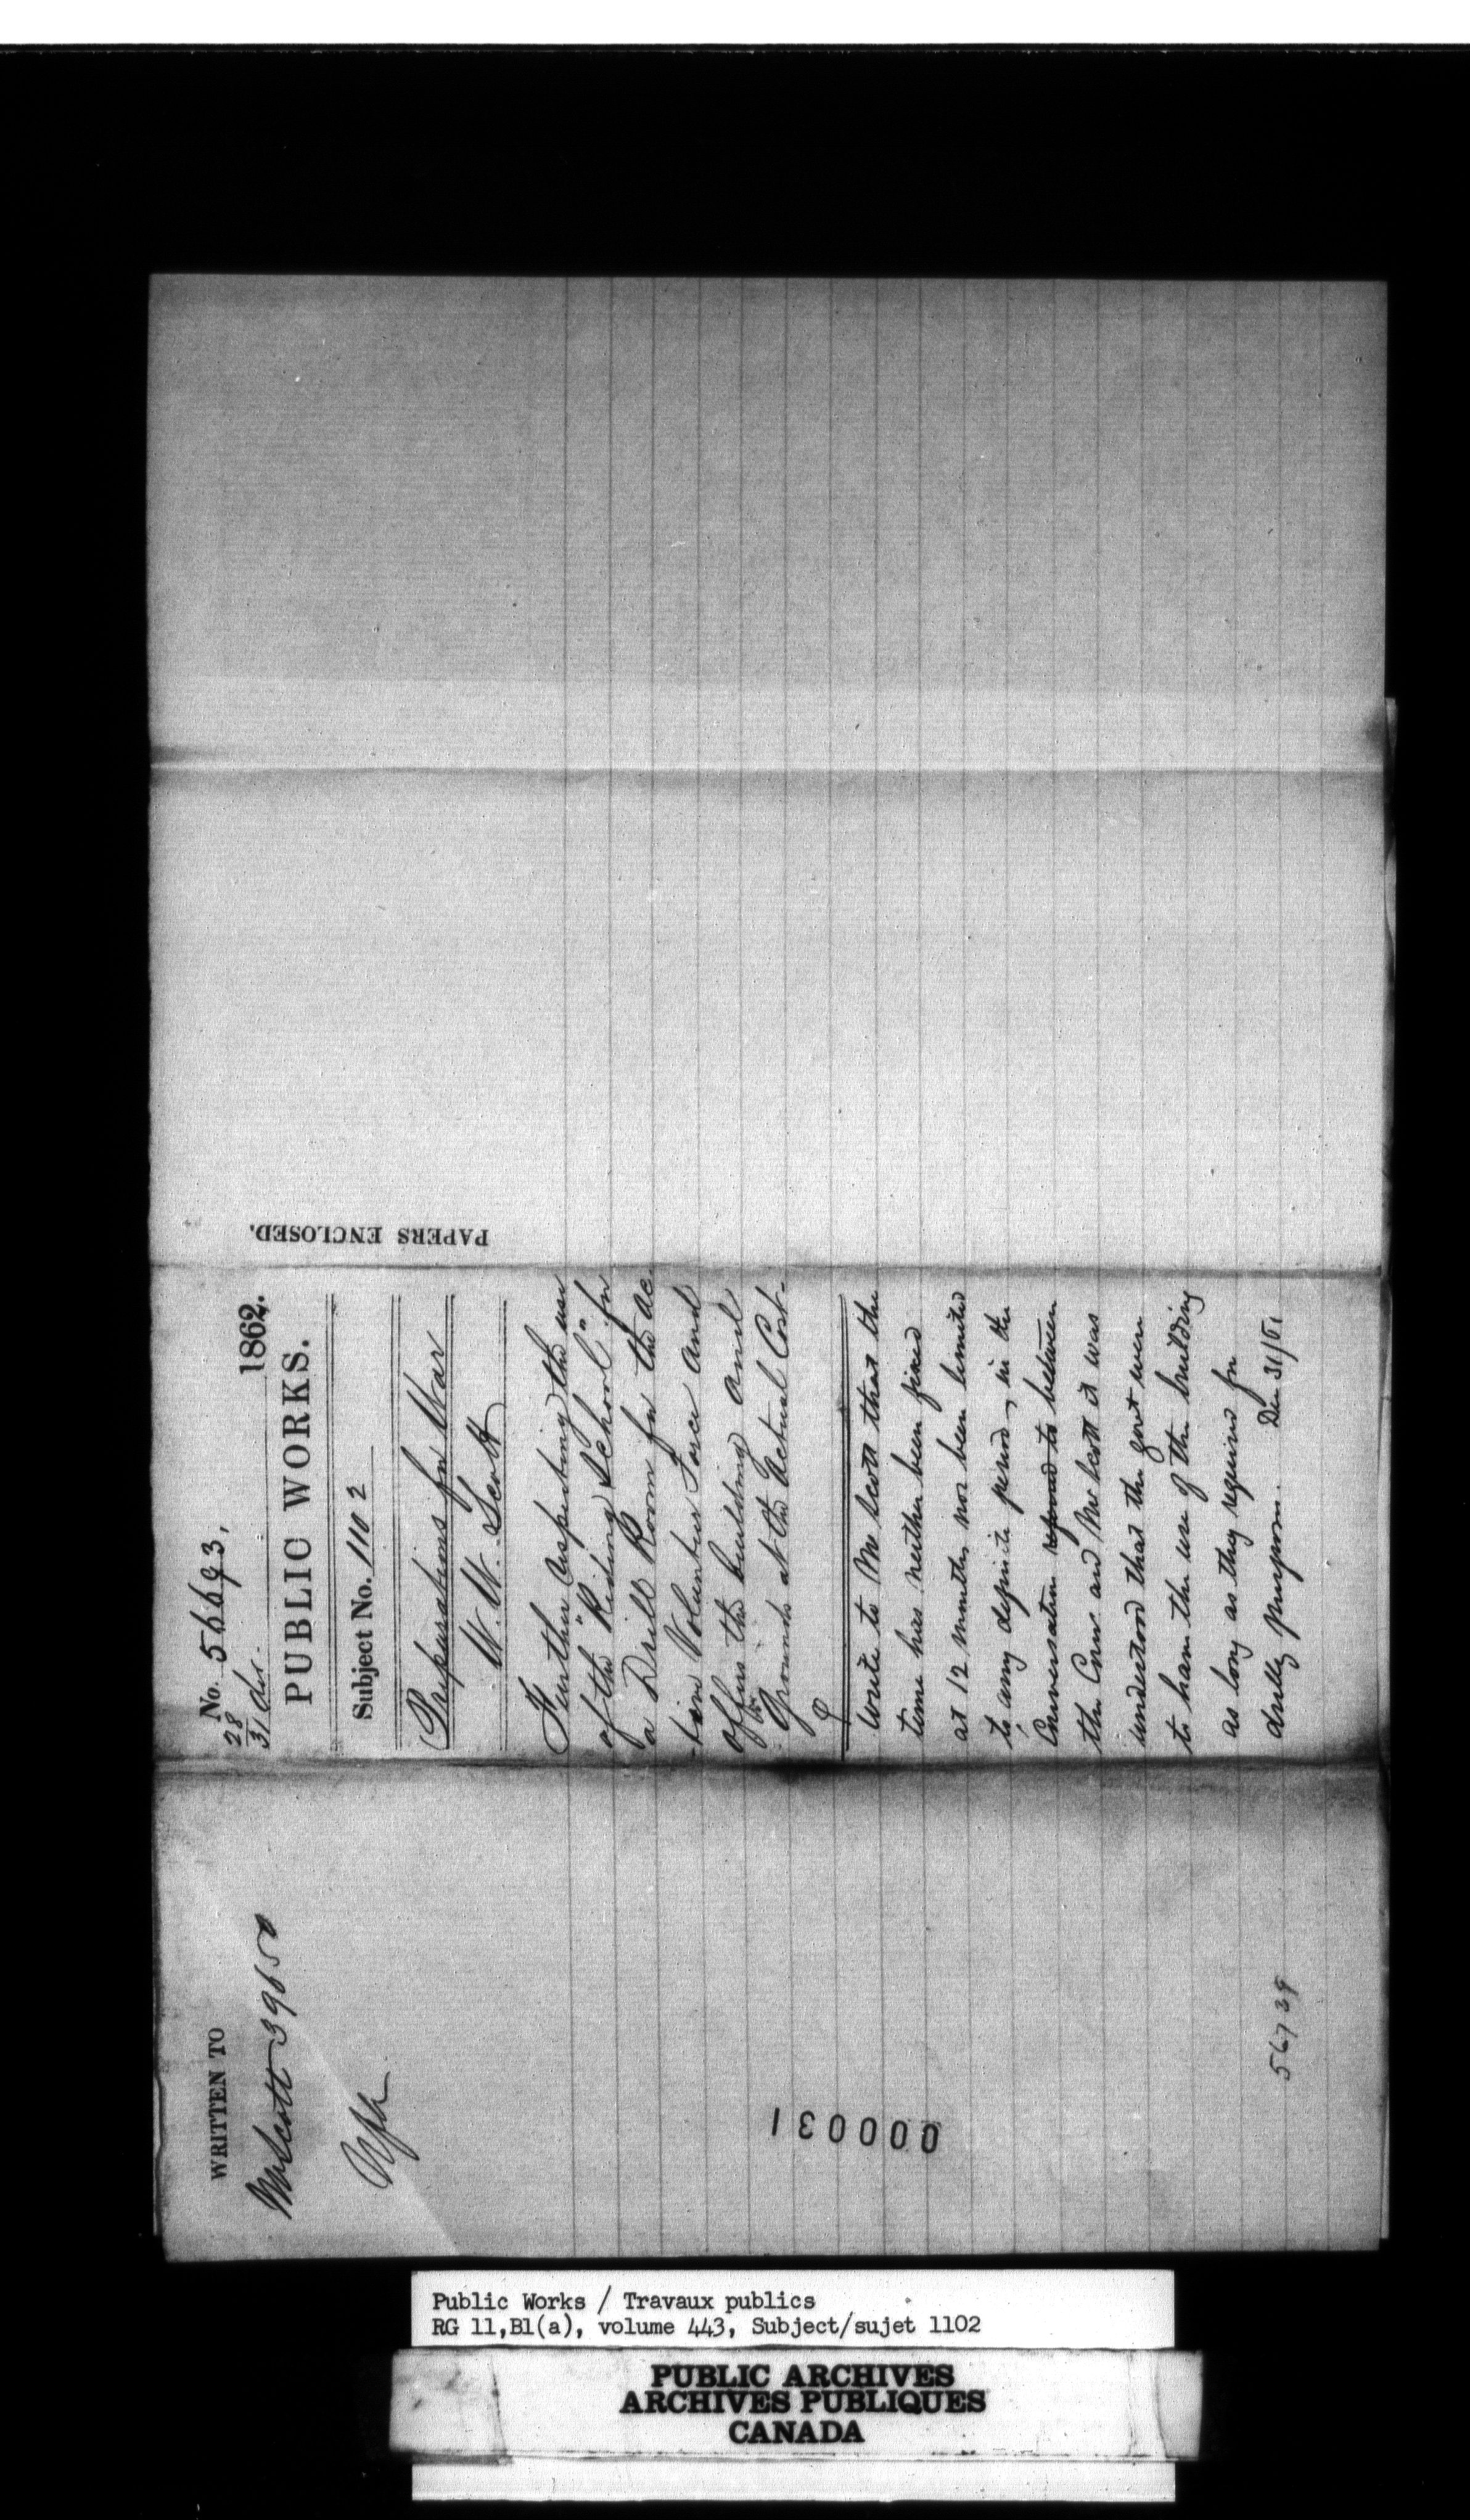 No. 56693,
28
31 Dec. 1862.
PUBLIC WORKS.
Subject No. 1102
Preparations for War
W. W. Scott
Further respecting the use
of the "Riding School" for
a Drill Room for the Ac
-tive Volunteer Force and
offers the building and
Grounds at the Actual Cost-
Write to Mr Scott that the
time has neither been fixed
at 12 months, nor been limited
to any definite period, in the
Conversation referred to between
the Comr and Mr Scott it was
understood that the govt were
to have the use of the building
as long as they required for
drilling purposes. Dec 31/61
PAPERS ENCLOSED.
WRITTEN TO
Mr Scott 39650
56739
000031
Public Works / Travaux publics
RG 11,B1(a), volume 443, Subject/sujet 1102
PUBLIC ARCHIVES
ARCHIVES PUBLIQUES
CANADA